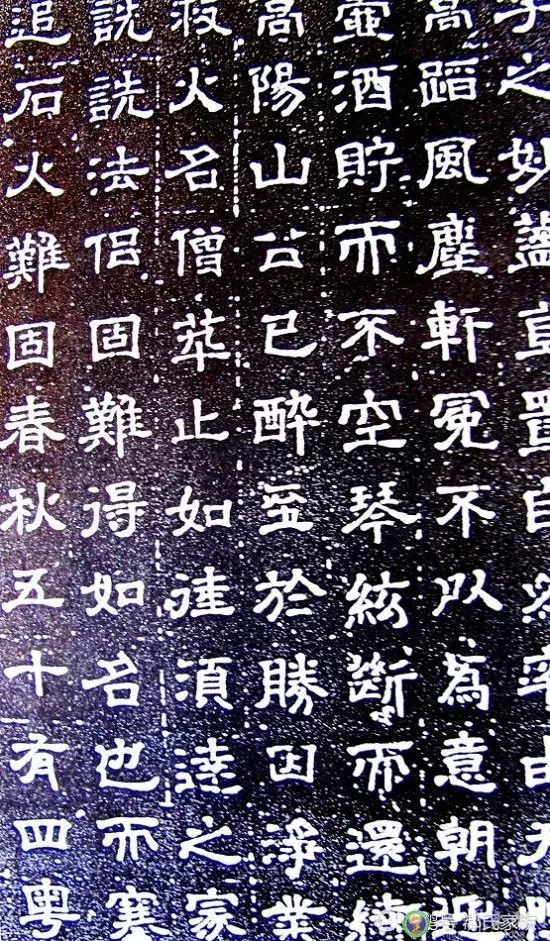 之妙置自率由天
高蹈風塵軒冕不以為意朝近
壺酒貯而不空琴絃斷而還續
高陽山公已醉至於勝因淨業
名僧萃止如徙須達之家
詵詵法侶固難得如名也而
追石火難固春秋五十有四粤
氏家族